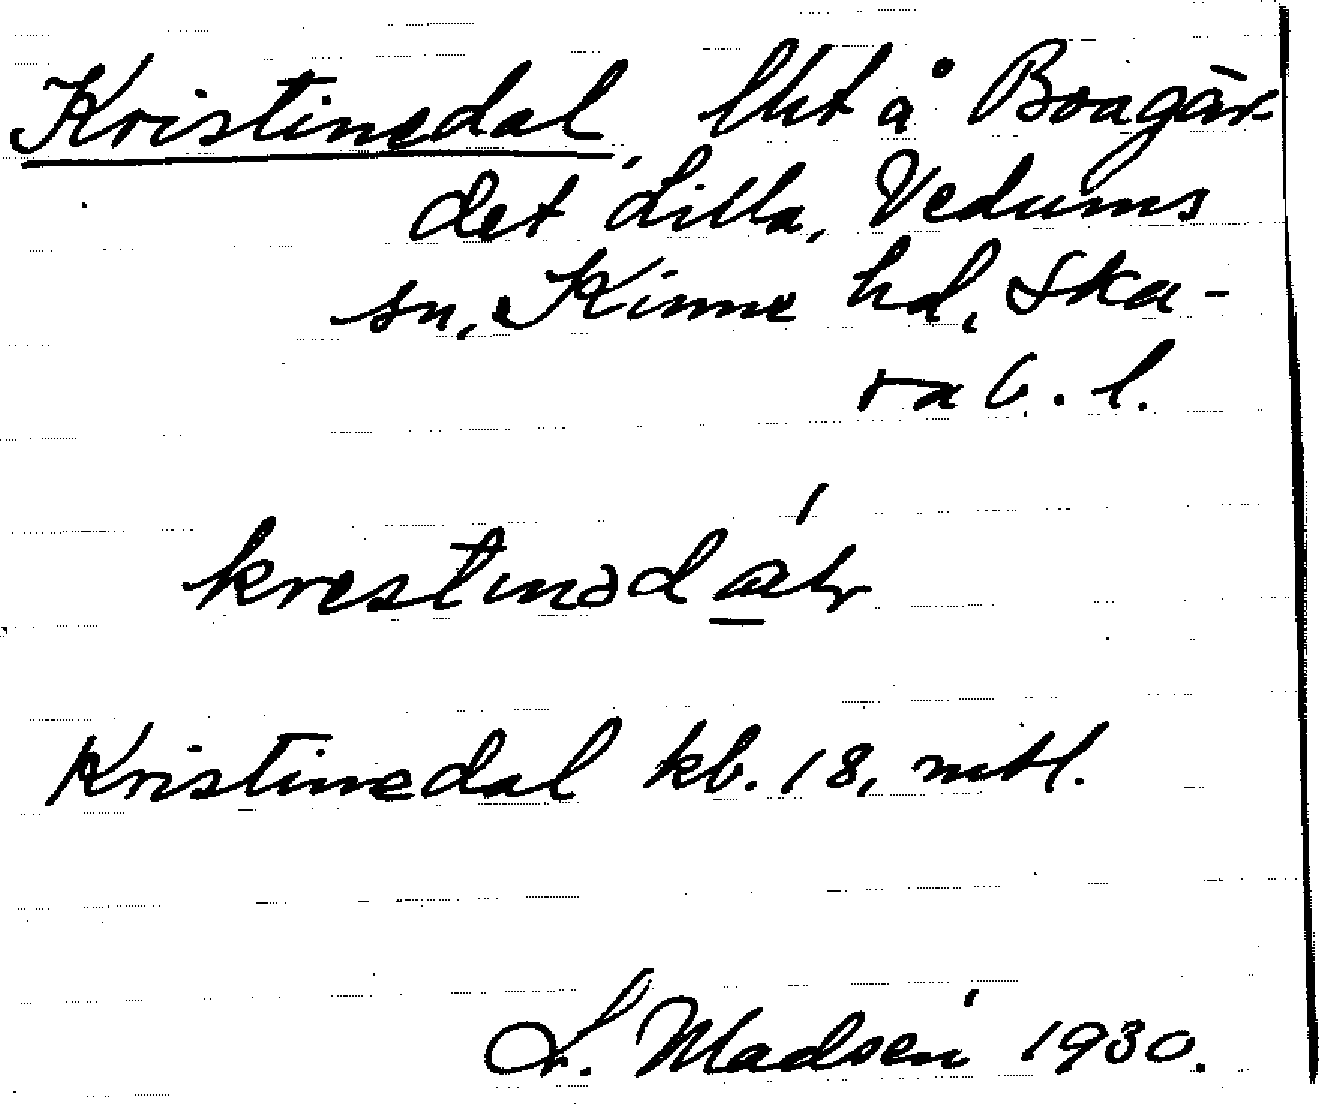 Kristinedal, lht å Boagär-
det Lilla, Vedums
sn, Kinne hd, Ska-
rab. l.
krestinədalr
Kristinedal kb. 18, mtl.
L. Madsén 1930.